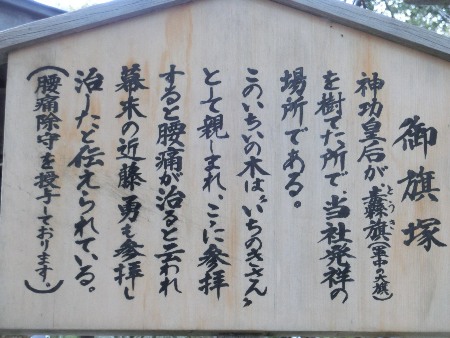 御旗塚
神功皇后が纛旗(軍中の大旗)
とう
を樹てた所で、当社発祥の
場所である。
このいちいの木は“いちのきさん”
とて親しまれ、ここに参拝
すると腰痛が治ると云われ
幕末の近藤勇も参拝し
治したと伝えられている。
(腰痛除守を授与しております。)